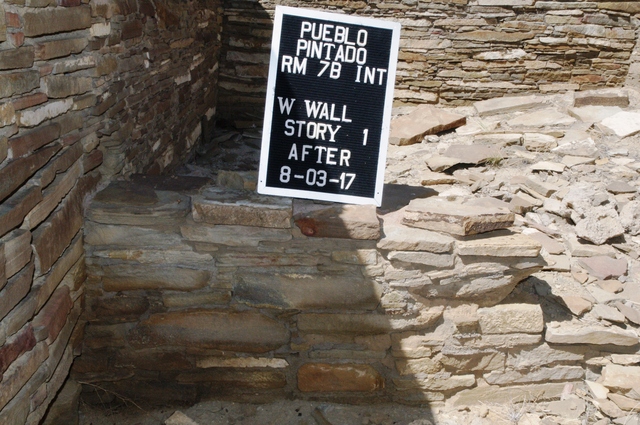 PUEBLO
PINTADO
RM 7B INT
W WALL
STORY 1
AFTER
8-03-17